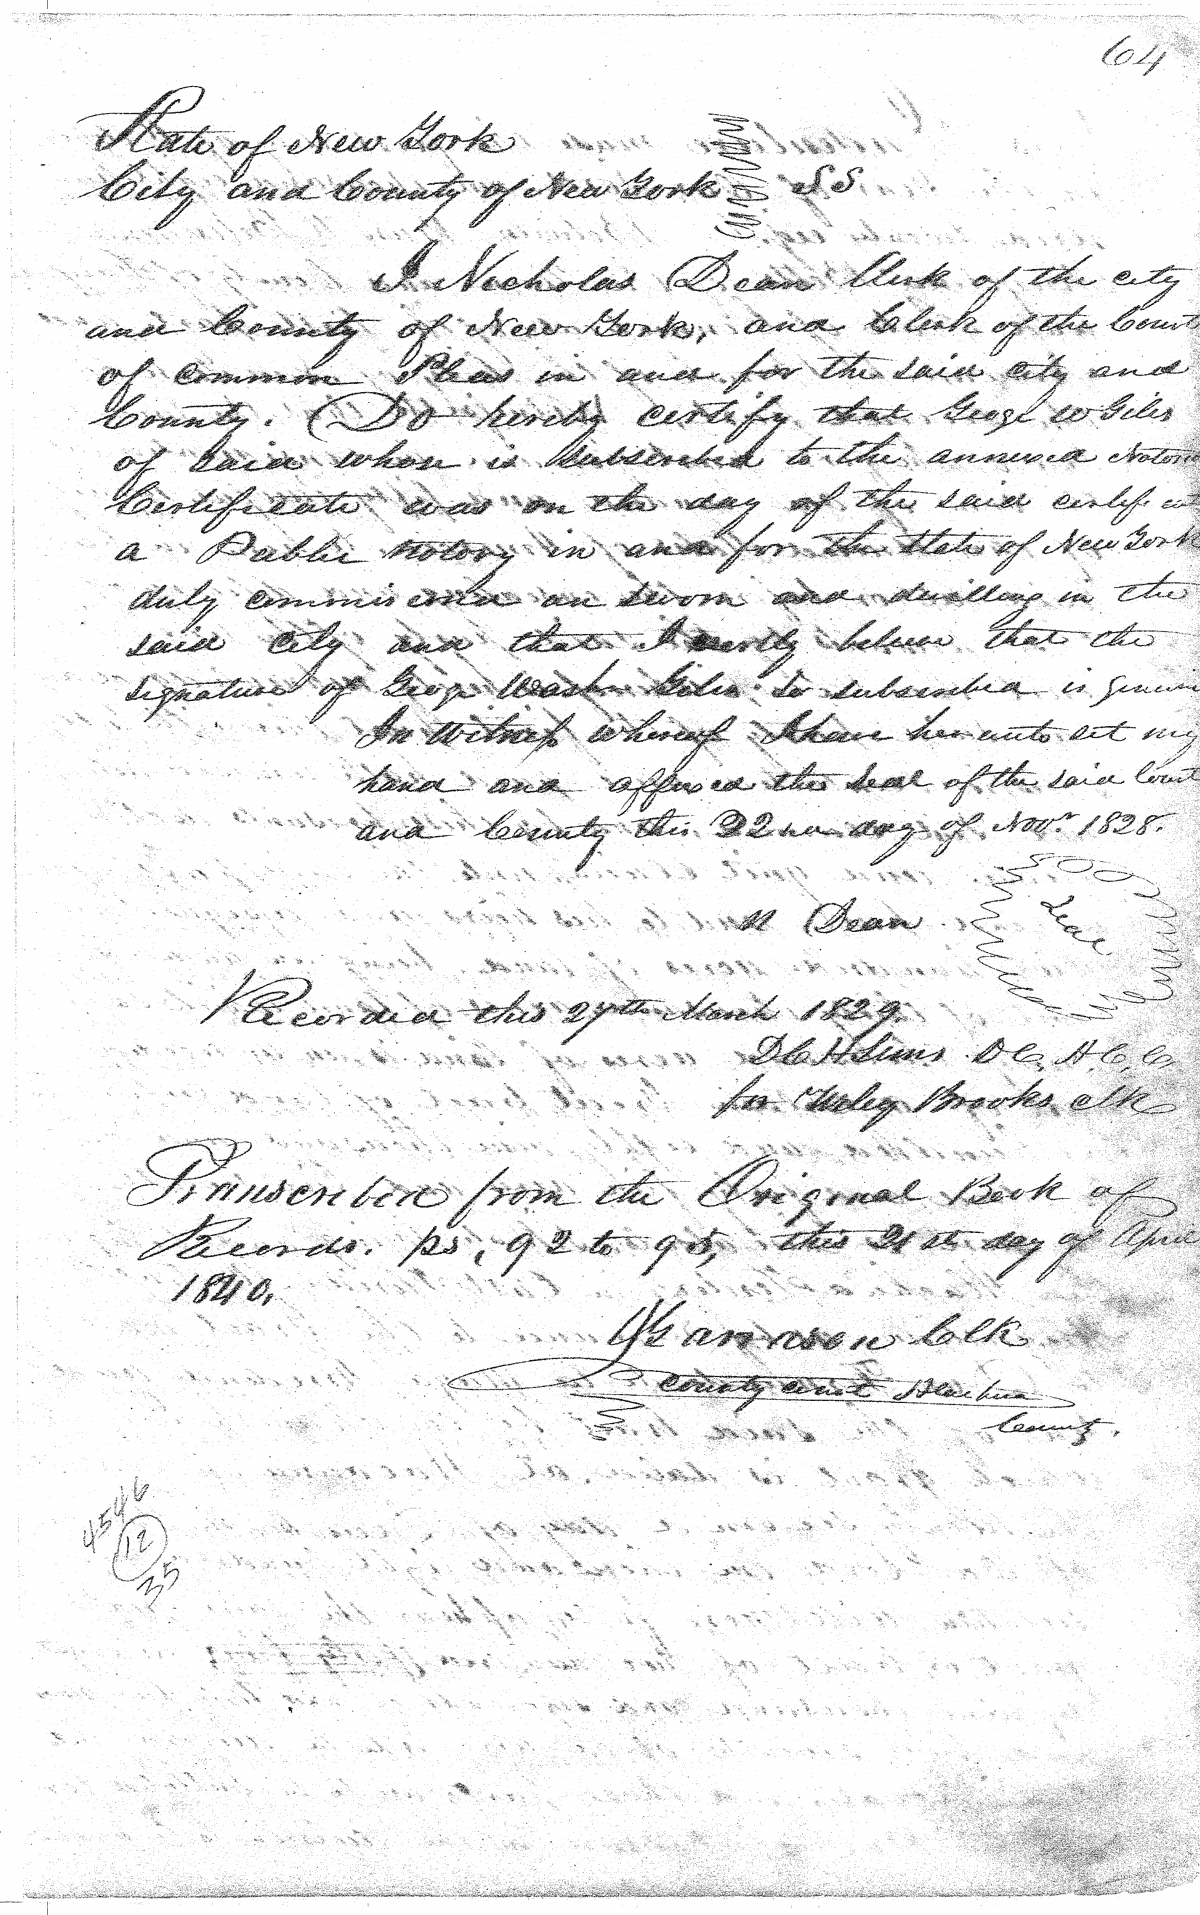 64
State of New York
City and County of New York SS
I Nicholas Dean Clerk of the city
and County of New York, and Clerk of the Court
of common Pleas in and for the said city and
County. Do hereby certify that Geoge W Giles
of Said whose is Subscribed to the annexed Notori
Certificate was on the day of the said certificat
a Public notory in and for the State of New York
duly commissioned an sworn and dwelling in the
said City and that I verily believe that the
signature of Geoge Washn Giles So subscribed is genuin
In Witness whereof I have hereunto set my
hand and affixed the Seal of the said Court
and County this 22nd day of Novr 1828.
N Dean
Seal
Recorded this 27th March 1829.
D C H Sims D C, A C, C,
for Brooks, clk
Transcribed from the Original Book of
Records. ps, 92 to 95, this 21st day of April
1840,
Garrison Clk
County court Alachua
County.
4546
12
35